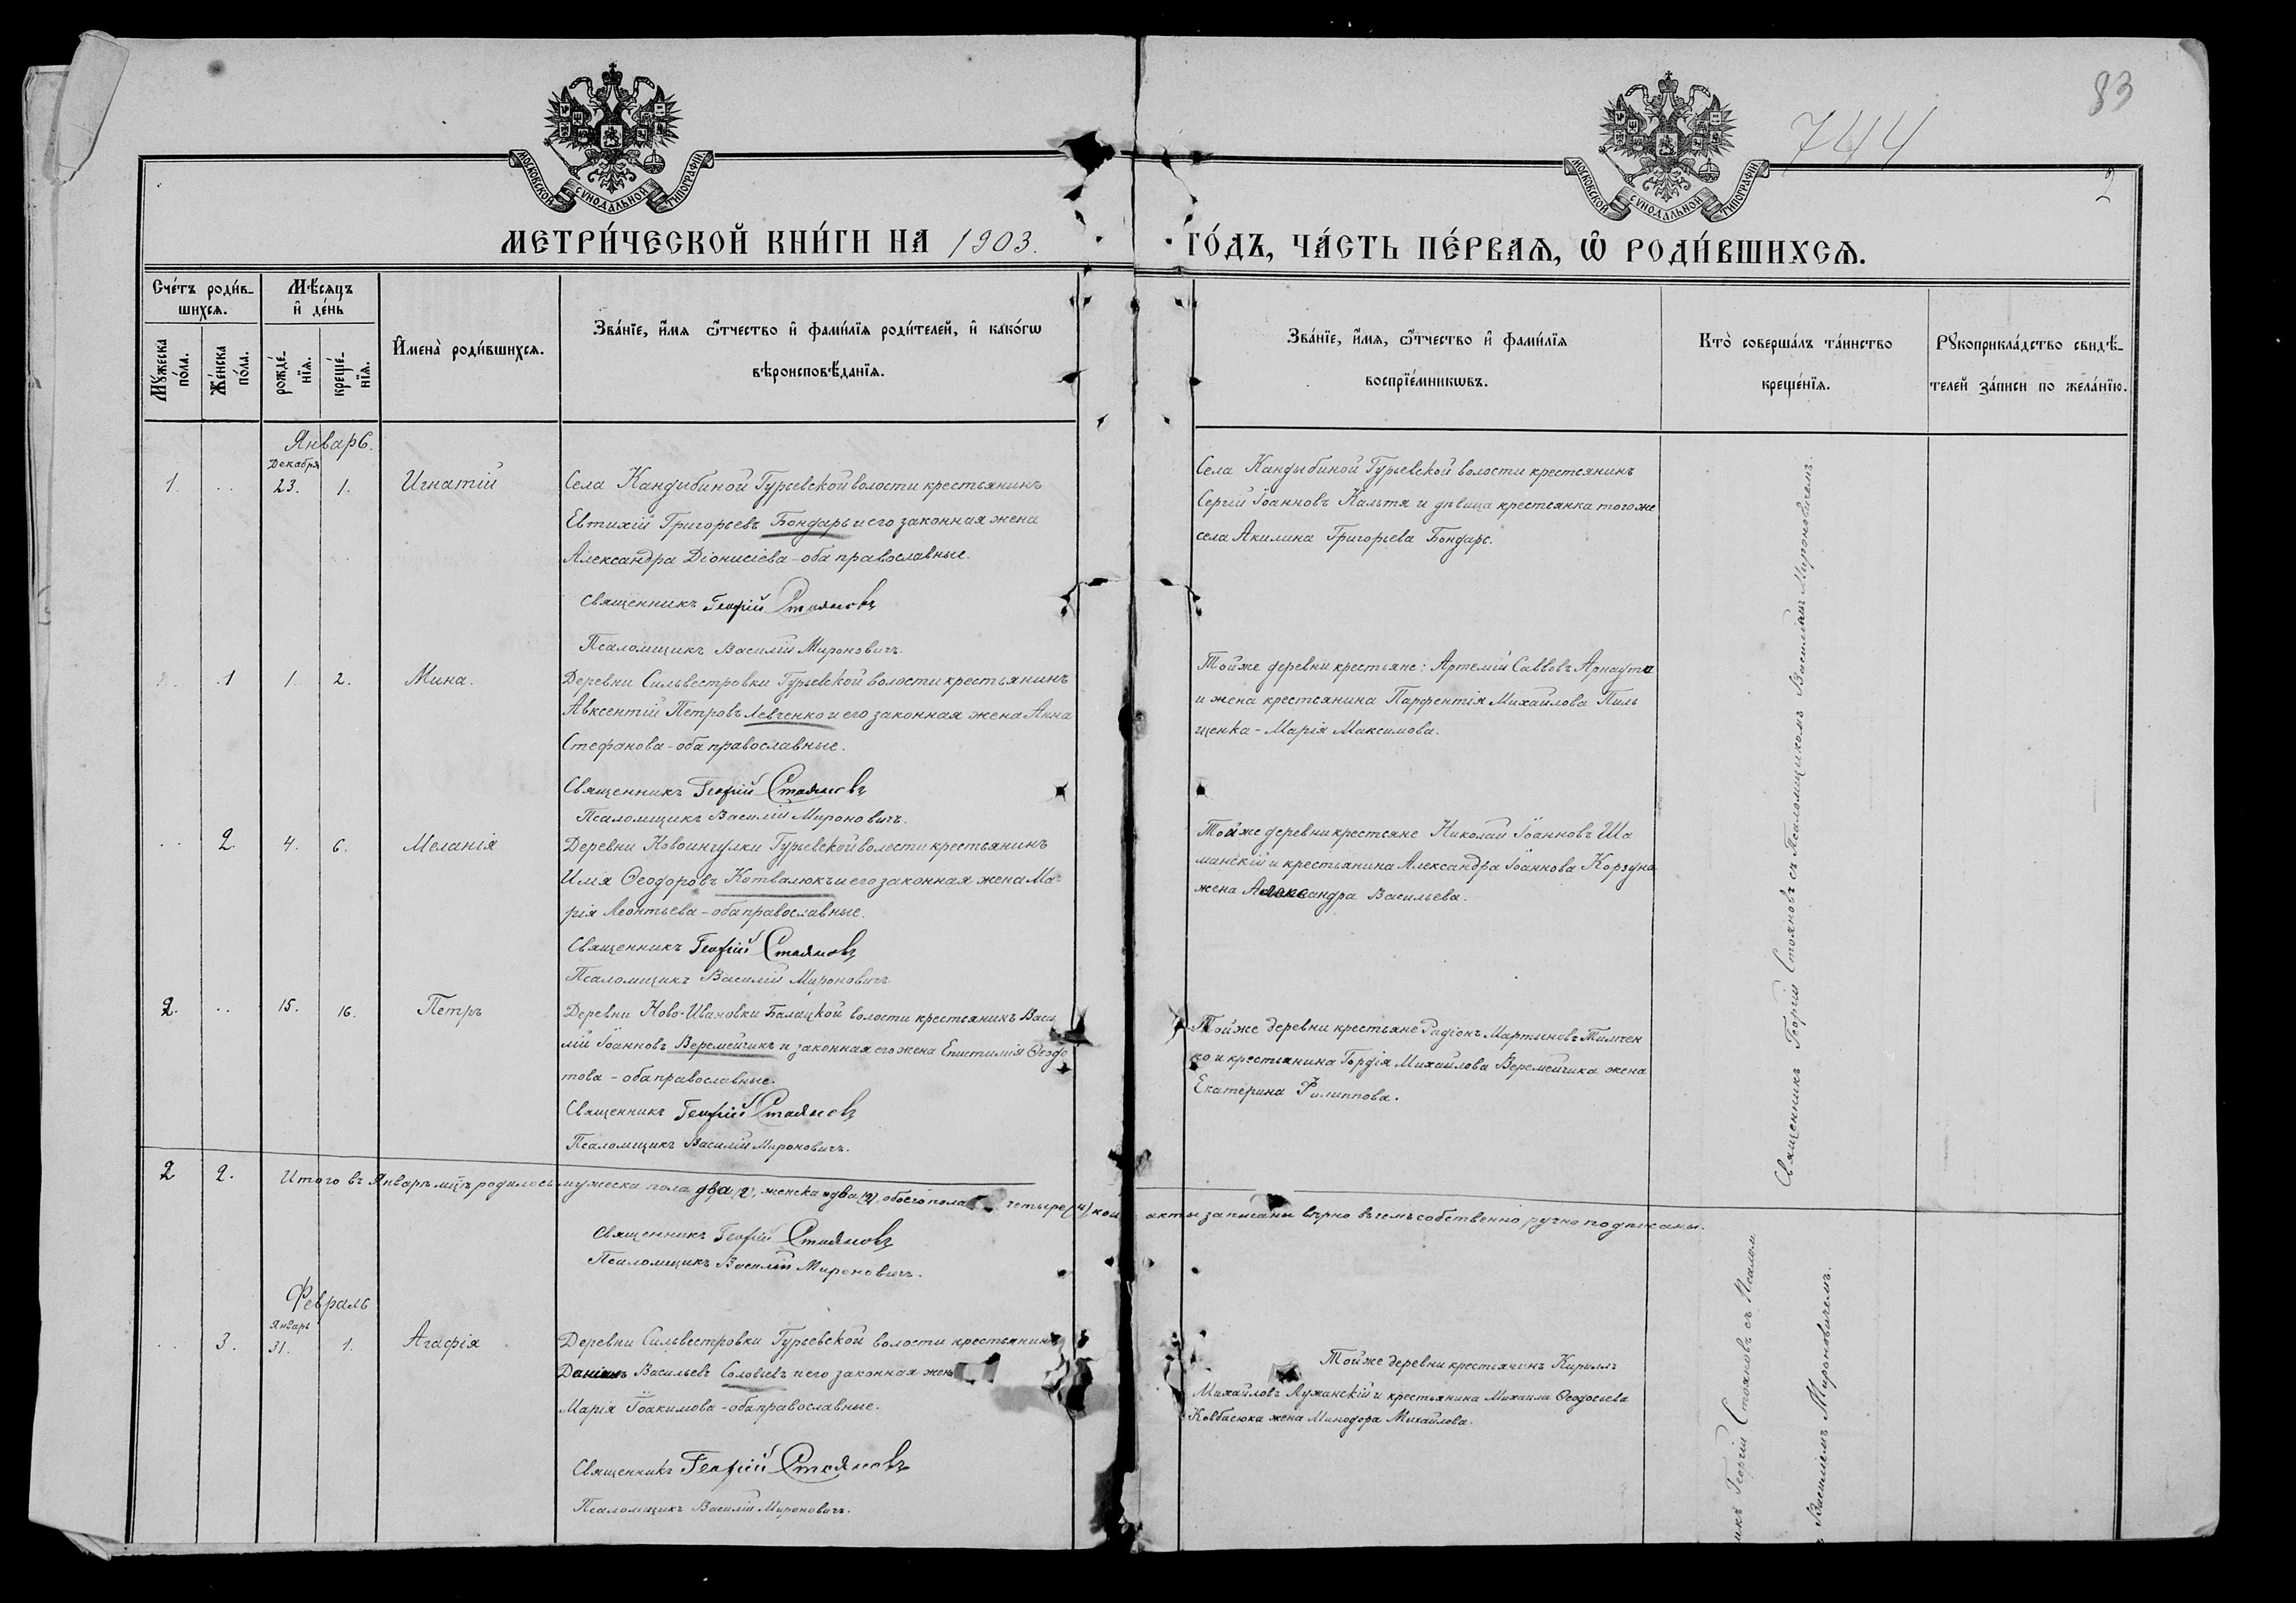 83
744
2
МОСКОВСКОЙ СУНОДАЛЬНОЙ ТИПОГРАФІИ.
МОСКОВСКОЙ СУНОДАЛЬНОЙ ТИПОГРАФІИ.
МЕТРИ́ЧЕСКОЙ КНИ́ГИ НА 1903.
ГО́ДЪ, ЧА́СТЬ ПЕ́РВАЯ, Ѡ҆ РОДИ́ВШИХСЯ.
Сче́тъ роди́в-
шихся.
Мѣ́сяцъ
и҆ де́нь
Мꙋ́жеска
по́ла.
Же́нска
по́ла.
рожде́-
нїя.
креще́-
нїя.
И҆мена̀ роди́вшихся.
Зва́нїе, и҆́мя ѻ҆́тчество и҆ фами́лїя роди́телей, и҆ како́гѡ
вѣроисповѣ́данїя.
Зва́нїе, и҆́мя, ѻ҆́тчество и҆ фами́лїя
воспрїе́мникѡвъ.
Кто̀ соверша́лъ та́инство
креще́нїя.
Рꙋкоприкла́дство свидѣ́-
телей за́писи по жела́нїю.
Январь.
Декабря
1. .. 23. 1. Игнатій
Села Кандыбиной Гурьевской волости крестьянинъ
Евтихій Григорьевъ Бондарь и его законная жена
Александра Діонисіева - оба православные.
Священникъ Георгій Стояновъ
Псаломщикъ Василій Мироновичъ.
Села Кандыбиной Гурьевской волости крестьянинъ
Сергій Іоанновъ Кальтя и дѣвица крестьянка тогоже
села Акилина Григорьева Бондарь.
.. 1 1 2. Мина.
Деревни Сильвестровки Гурьевской волости крестьянинъ
Авксентій Петровъ Левченко и его законная жена Анна
Стефанова - оба православные.
Священникъ Георгій Стояновъ
Псаломщикъ Василій Мироновичъ.
Тойже деревни крестьяне: Артемій Савовъ Арнаутъ
и жена крестьянина Парфентія Михайлова Пиль
щенка - Марія Максимова.
.. 2. 4. 6. Меланія
Деревни Новоингулки Гурьевской волости крестьянинъ
Илія Ѳеодоровъ Котвалюкъ и его законная жена Ма-
рія Леонтьева - оба православные.
Священникъ Георгій Стояновъ
Псаломщикъ Василій Мироновичъ
Тойже деревни крестьяне Николай Іоанновъ Ша
манскій и крестьянина Александра Іоаннова Корзуна
жена Александра Васильева.
2. .. 15. 16. Петръ
Деревни Ново-Ивановки Балацкой волости крестьянинъ Васи
лій Іоанновъ Веремейчикъ и законная его жена Епистимія Ѳеодо
това - оба православные.
Священникъ Георгій Стояновъ
Псаломщикъ Василій Мироновичъ.
Тойже деревни крестьяне Радіонъ Мартыновъ Тимчен
ко и крестьянина Гордія Михайлова Веремейчика жена
Екатерина Филиппова.
Священникъ Георгій Стояновъ съ Псаломщикомъ Василіемъ Мироновичемъ.
2 2. Итого въ Январѣ мцѣ родилось мужеска пола два (2), женска два (2), обоего пола четыре (4) кои акты записаны вѣрно въ чемъ собственно ручно подписамы.
Священникъ Георгій Стояновъ
Псаломщикъ Василій Мироновичъ.
Февраль
Январь
.. 3. 31. 1. Агафія
Деревни Сильвестровки Гурьевской волости крестьянинъ
Даніилъ Васильевъ Соловьевъ и его законная жена
Марія Іоакимова - оба православные.
Священникъ Георгій Стояновъ
Псаломщикъ Василій Мироновичъ.
Тойже деревни крестьянинъ Кириллъ
Михайловъ Лужанскій и крестьянина Михаила Ѳеодосіева
Ковбасюка жена Минодора Михайлова.
икъ Георгій Стояновъ съ Псалом
Василіемъ Мироновичемъ.